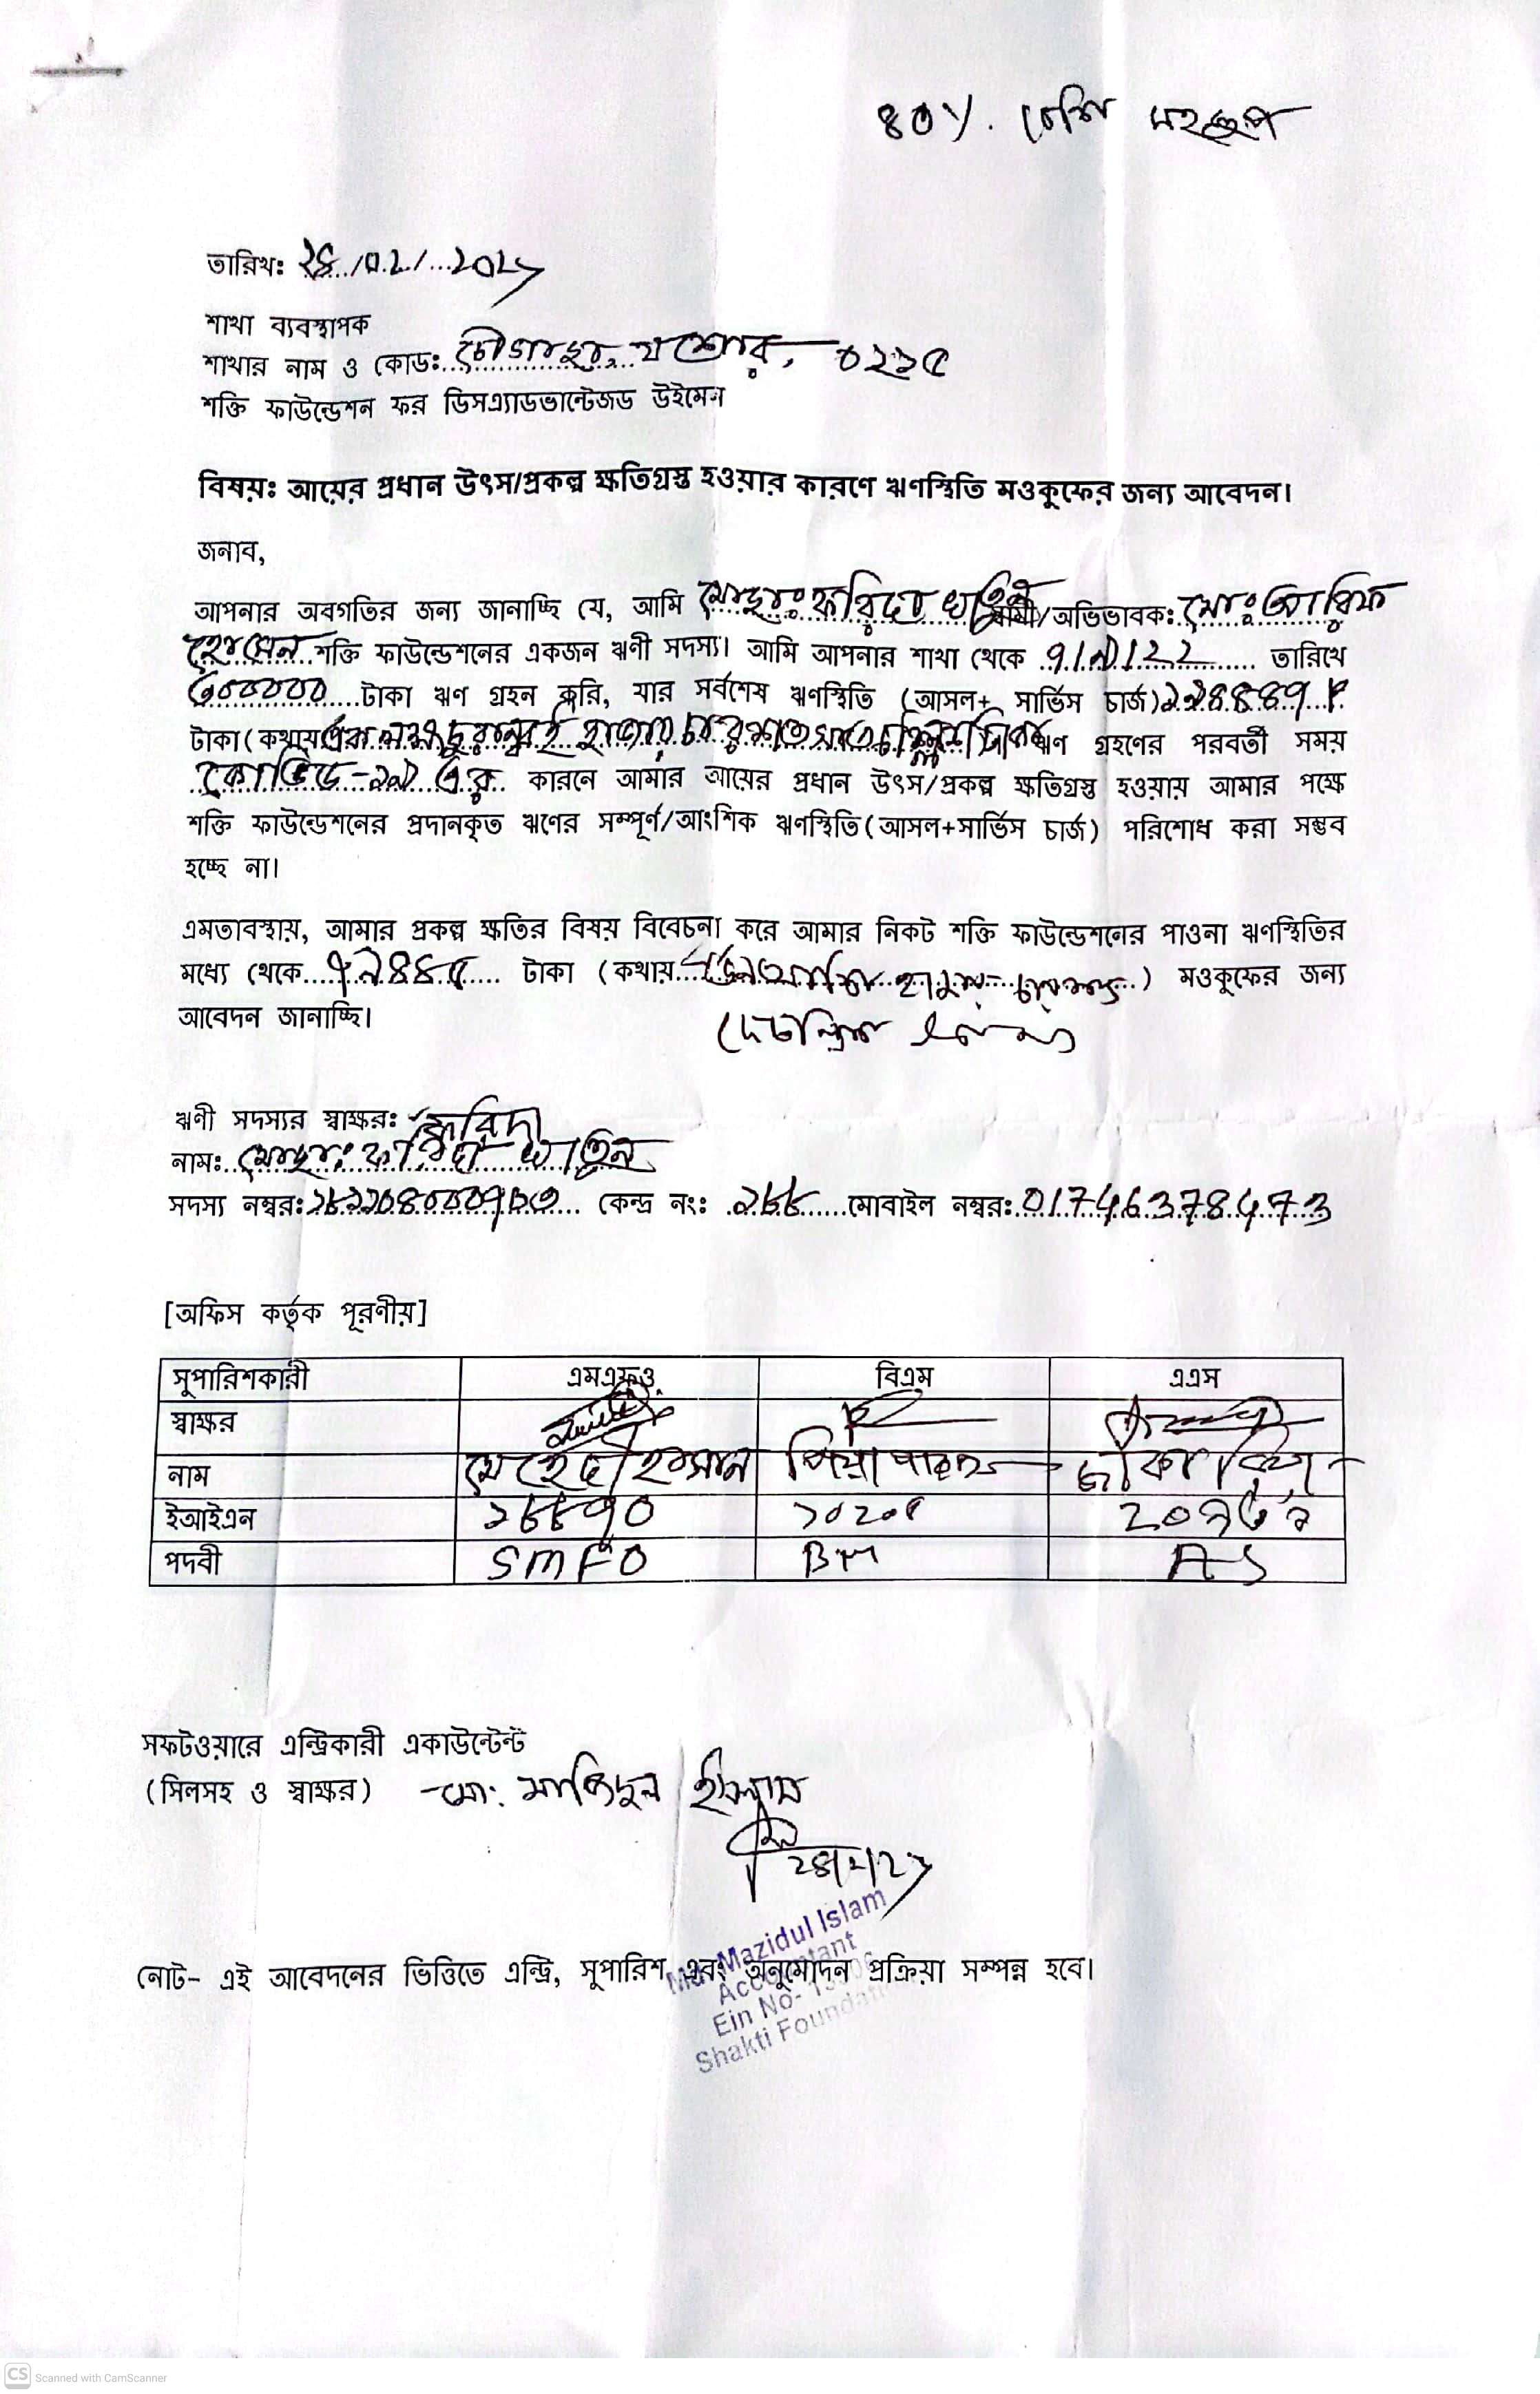 ৪০%. বেশি মওকুফ
তারিখঃ ২৪/০২/২০২
শাখা ব্যবস্থাপক
শাখার নাম ও কোডঃ চৌগাছা, যশোর, ০২১৫
শক্তি ফাউন্ডেশন ফর ডিসএ্যাডভান্টেজড উইমেন
বিষয়ঃ আয়ের প্রধান উৎস/প্রকল্প ক্ষতিগ্রস্ত হওয়ার কারণে ঋণস্থিতি মওকুফের জন্য আবেদন।
জনাব,
আপনার অবগতির জন্য জানাচ্ছি যে, আমি মোছাঃ ফরিদা খাতুন স্বামী/অভিভাবকঃ মোঃ আরিফ
হোসেন শক্তি ফাউন্ডেশনের একজন ঋণী সদস্য। আমি আপনার শাখা থেকে ৭/৯/২২ তারিখে
৩০০০০০ টাকা ঋণ গ্রহন করি, যার সর্বশেষ ঋণস্থিতি (আসল+ সার্ভিস চার্জ) ১৯৪৪৪৭
টাকা (কথায় এক লক্ষ চুরানব্বই হাজার চারশত সাতচল্লিশ টাকা ঋণ গ্রহণের পরবর্তী সময়
কোভিড-১৯ এর কারনে আমার আয়ের প্রধান উৎস/প্রকল্প ক্ষতিগ্রস্ত হওয়ায় আমার পক্ষে
শক্তি ফাউন্ডেশনের প্রদানকৃত ঋণের সম্পূর্ণ/আংশিক ঋণস্থিতি (আসল+সার্ভিস চার্জ) পরিশোধ করা সম্ভব
হচ্ছে না।
এমতাবস্থায়, আমার প্রকল্প ক্ষতির বিষয় বিবেচনা করে আমার নিকট শক্তি ফাউন্ডেশনের পাওনা ঋণস্থিতির
মধ্যে থেকে ৭৯৪৪৫ টাকা (কথায় উনআশি হাজার চারশত) মওকুফের জন্য
আবেদন জানাচ্ছি।
ঋণী সদস্যর স্বাক্ষরঃ ফরিদা
নামঃ মোছাঃ ফরিদা খাতুন
সদস্য নম্বরঃ কেন্দ্র নংঃ ১৮৮ মোবাইল নম্বরঃ 01746378473
[অফিস কর্তৃক পূরণীয়]
সুপারিশকারী এমএফও বিএম এএস
স্বাক্ষর
নাম মেহেদী হাসান প্রিয়া
ইআইএন ১৮৮৭০
পদবী SMFO BM AS
সফটওয়ারে এন্ট্রিকারী একাউন্টেন্ট
(সিলসহ ও স্বাক্ষর) মো: মাজিদুল ইসলাম
Md. Mazidul Islam
নোট- এই আবেদনের ভিত্তিতে এন্ট্রি, সুপারিশ এবং অনুমোদন প্রক্রিয়া সম্পন্ন হবে।
Accountant
Ein No-
Shakti Foundation
CS Scanned with CamScanner